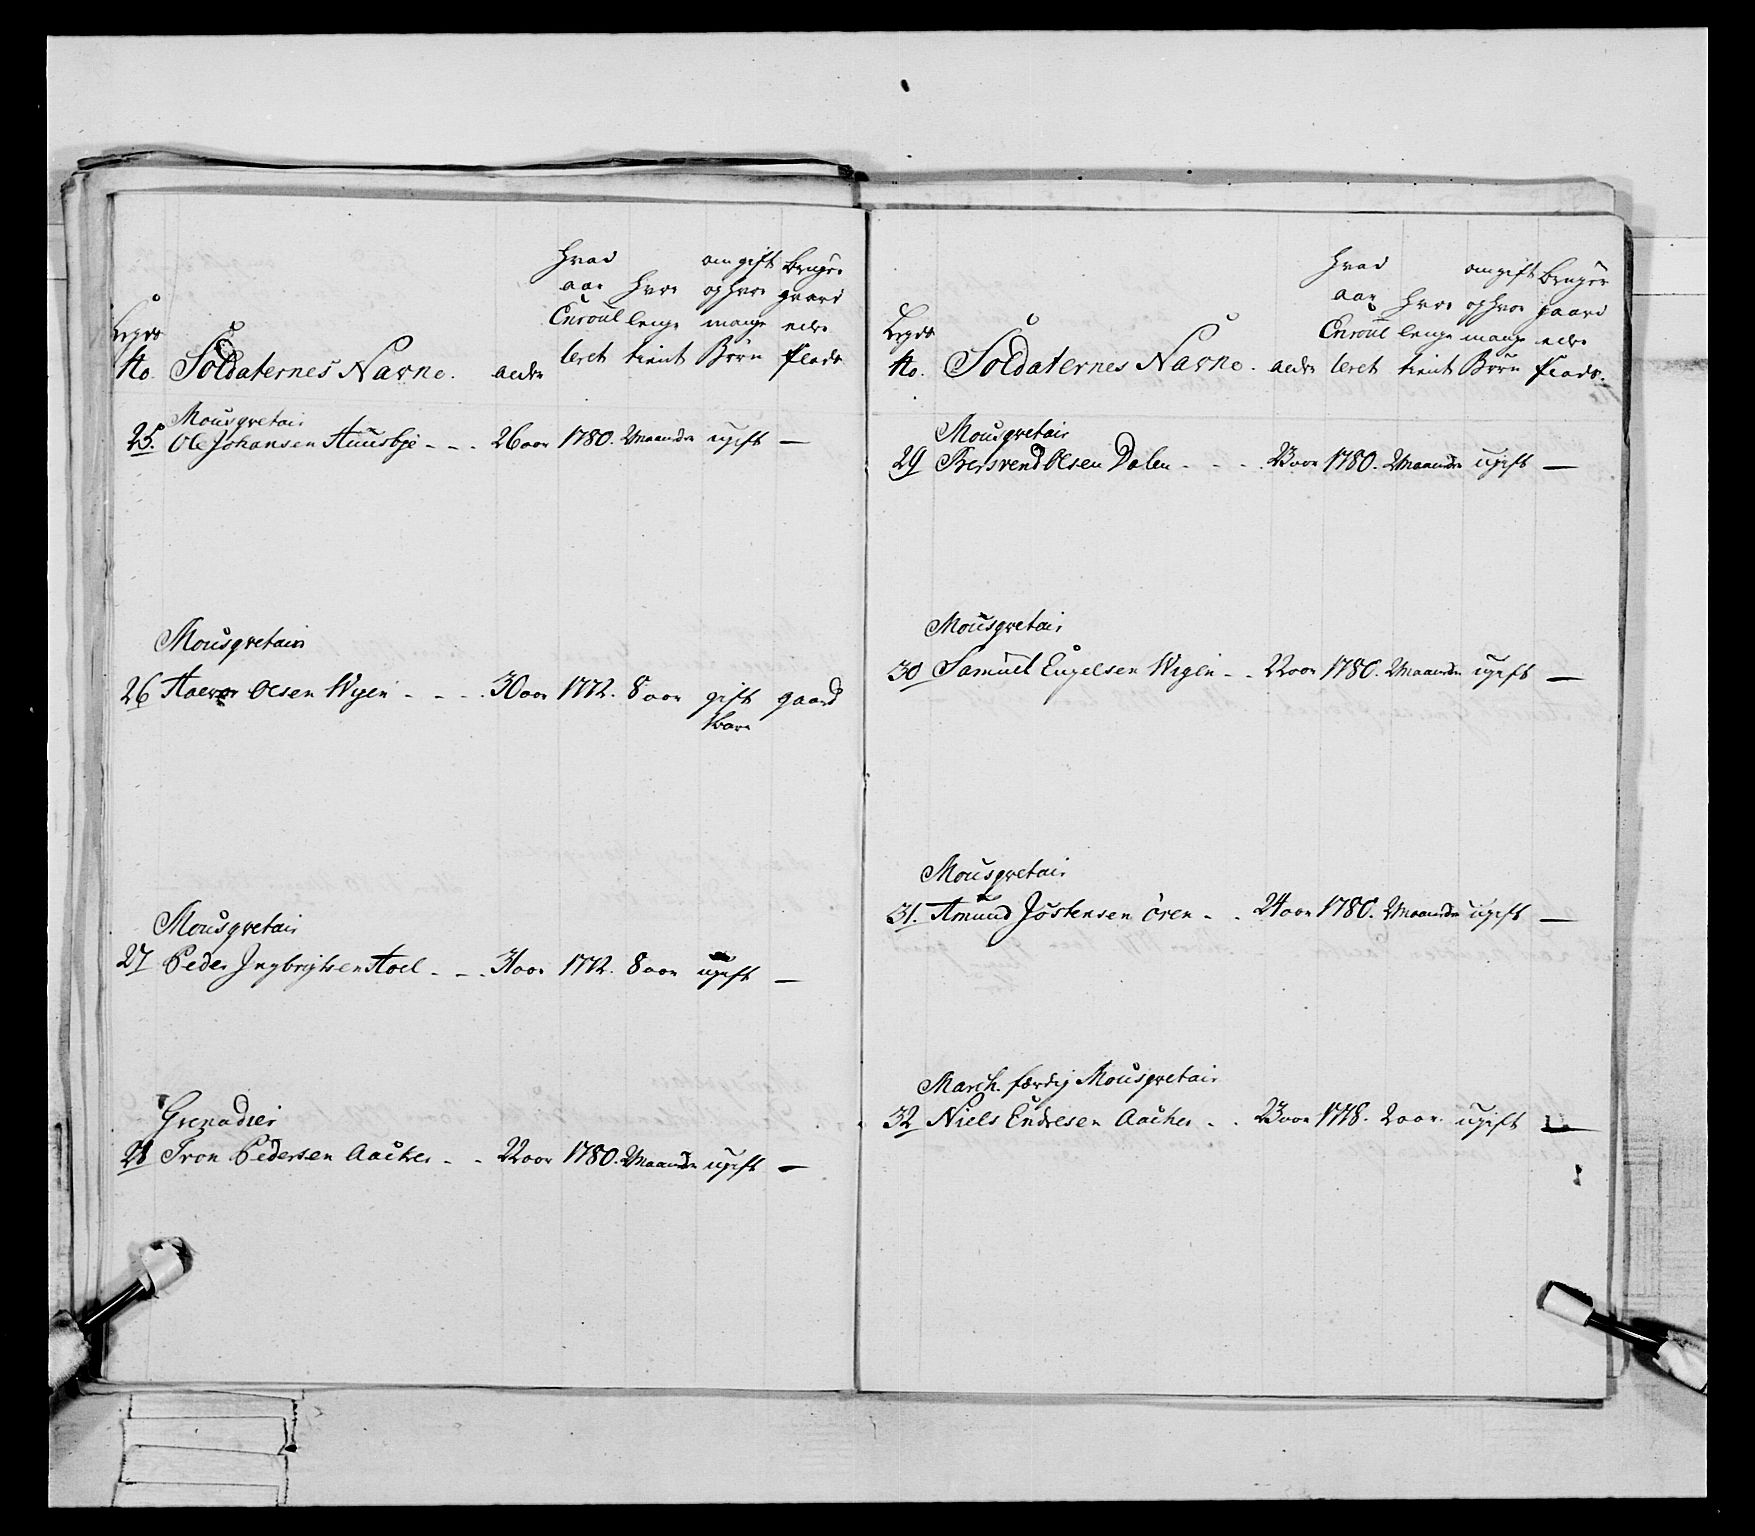 Legds No. Soldaternes Navne. alder Hvad aar Enroulleret Hvor lenge tient om gift og hvor mange Børn bruger gaard eller Plads
Mousqvetair
25. Ole Johansen - - - 26 aar 1780. Maander ugift —
Mousqvetair
26 Olsen Wigen - - - 30 aar 1772. 8 aar gift gaard
1 barn
Mousqvetair
27 Peder Ingbrigtsen Hoel - - - 31 aar 1772. 8 aar ugift —
Grenadier
28 Tron Pedersen Aacker - - 22 aar 1780. Maander ugift —
Legds No. Soldaternes Navne. alder Hvad aar Enroulleret Hvor lenge tient om gift og hvor mange Børn bruger gaard eller Plads.
Mousqvetair
29 Bersvend Olsen Dalen - - - 23 aar 1780. Maander ugift —
Mousqvetair
30 Samuel Engelsen Wigen - - 22 aar 1780. Maander ugift —
Mousqvetair
31. Amund Jostensen Ören - - 24 aar 1780. Maander ugift —
March. færdig Mousqvetair
32 Niels Endresen Aacker - - 23 aar 1778. 2 aar. ugift —